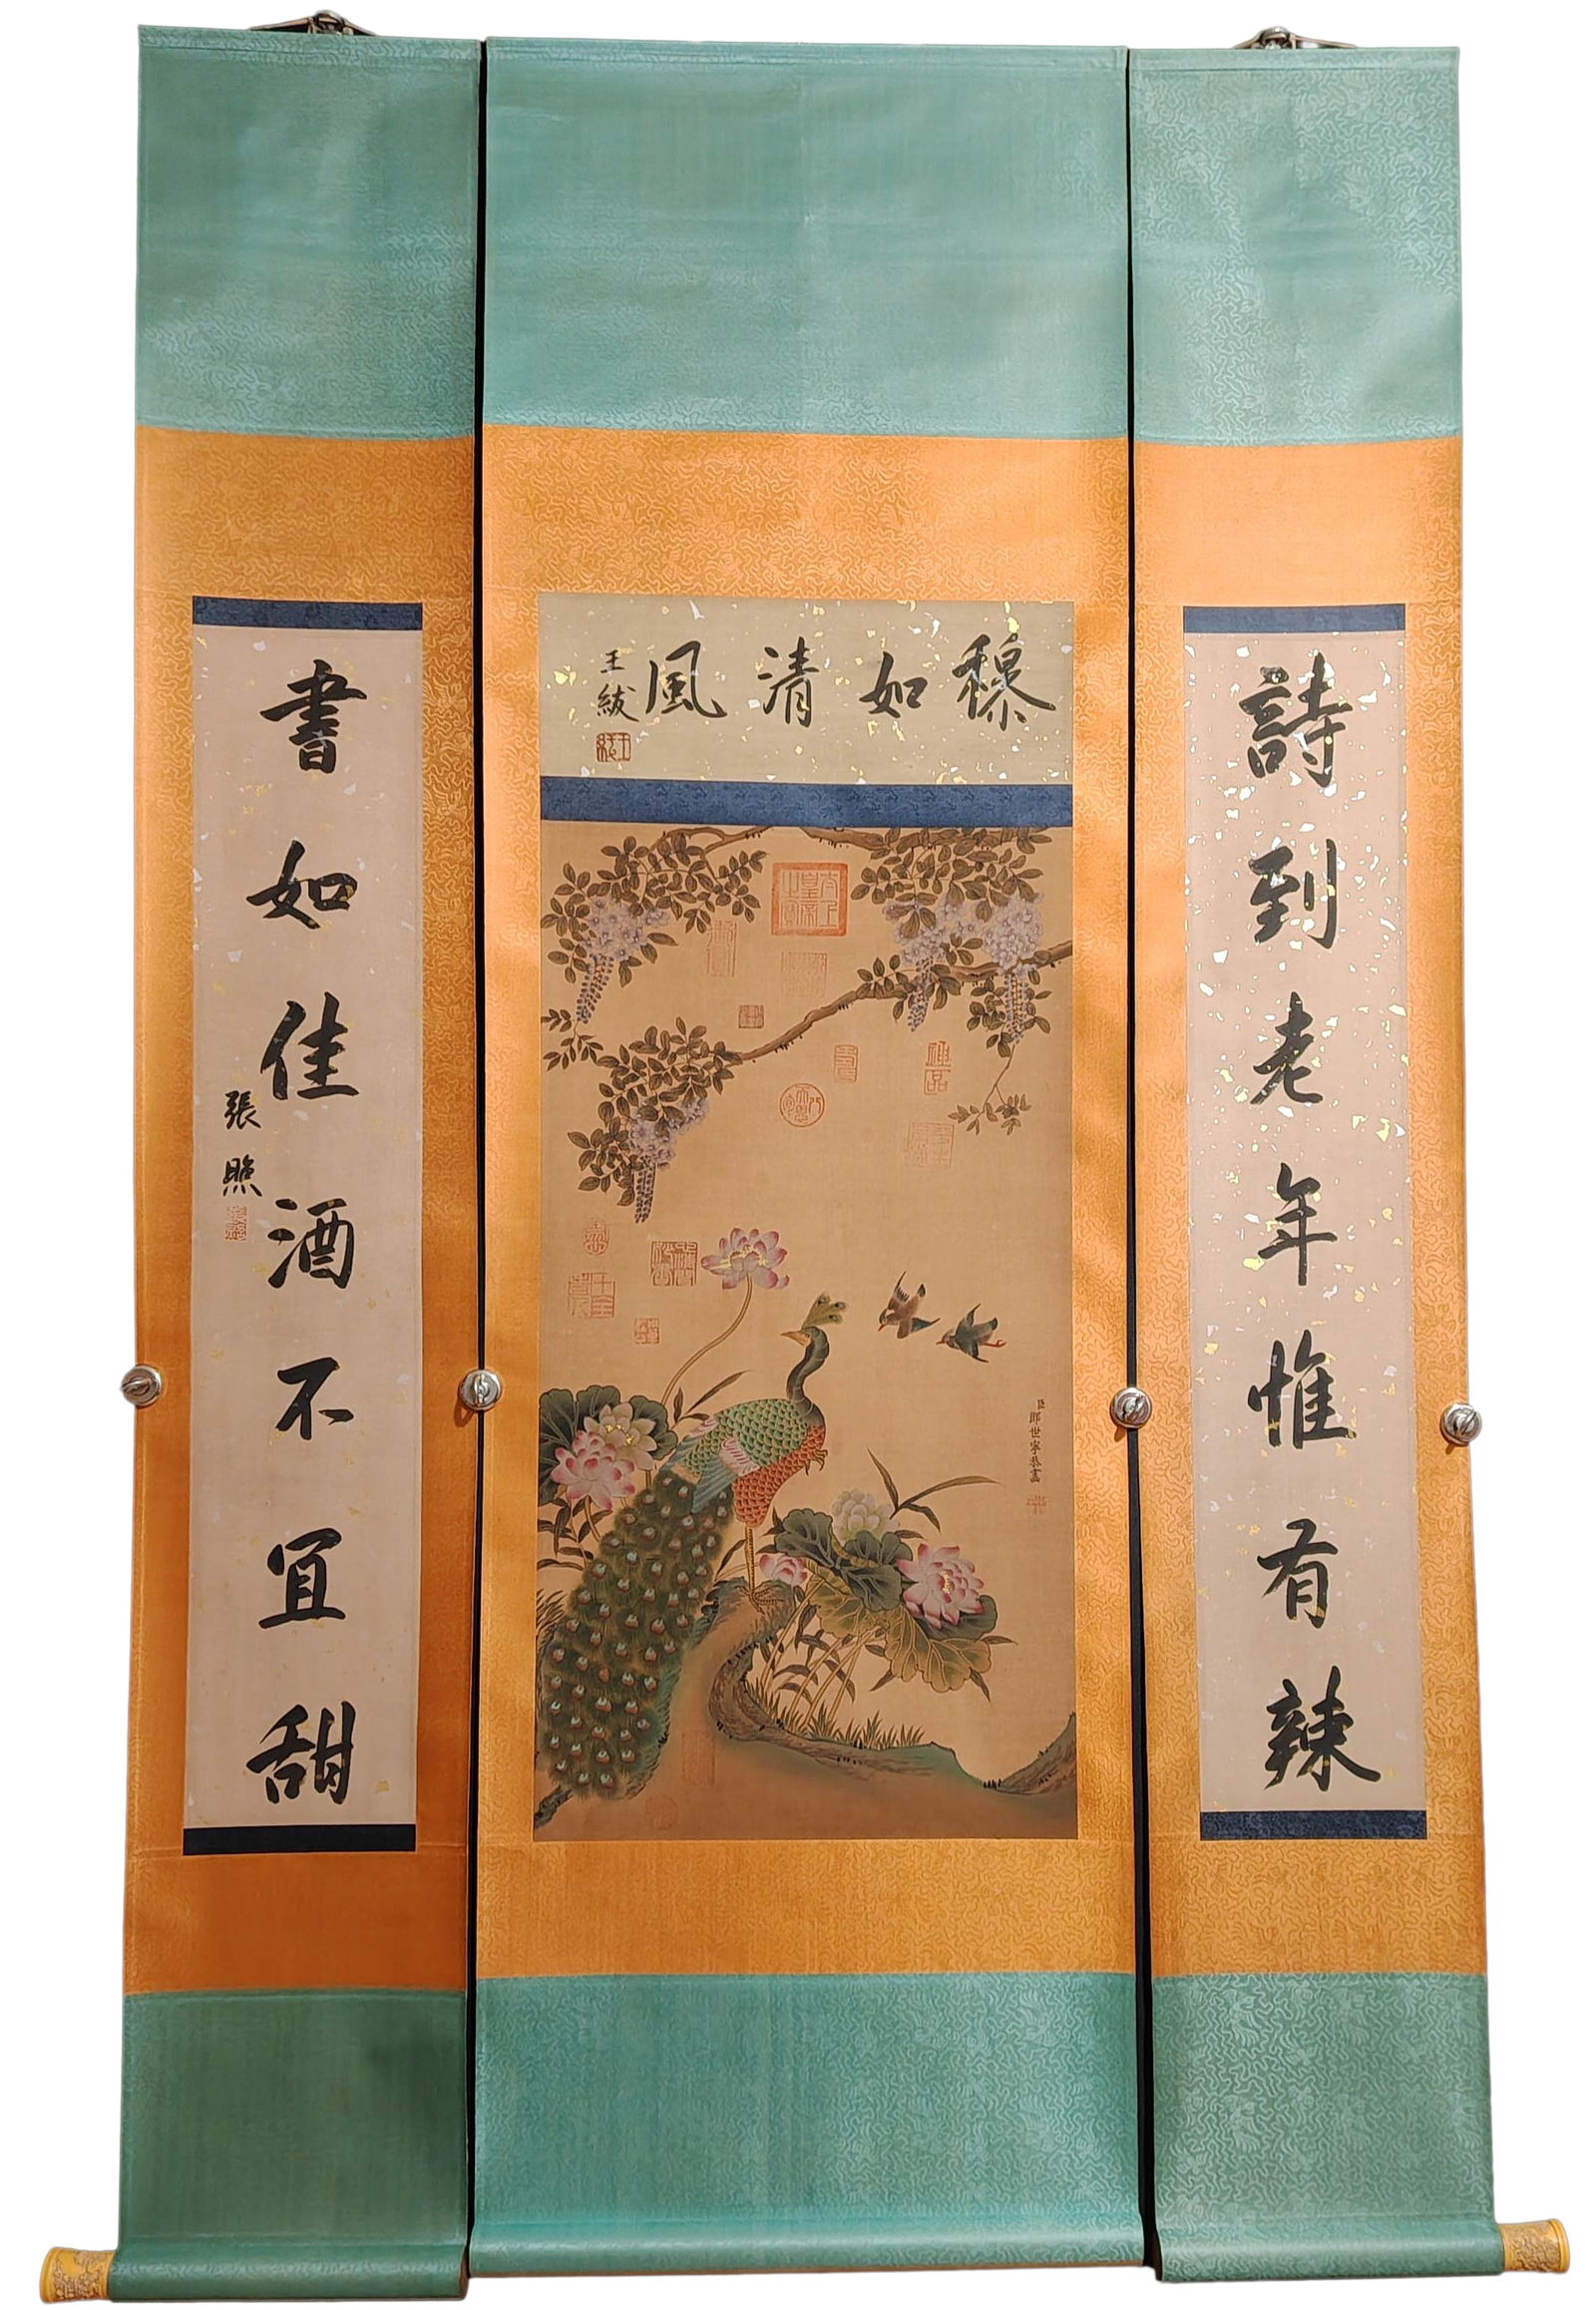 穆如清風
王紱
詩到老年惟有辣
書如佳酒不宜甜
張照
臣郎世寧恭畫
太上皇帝之寶